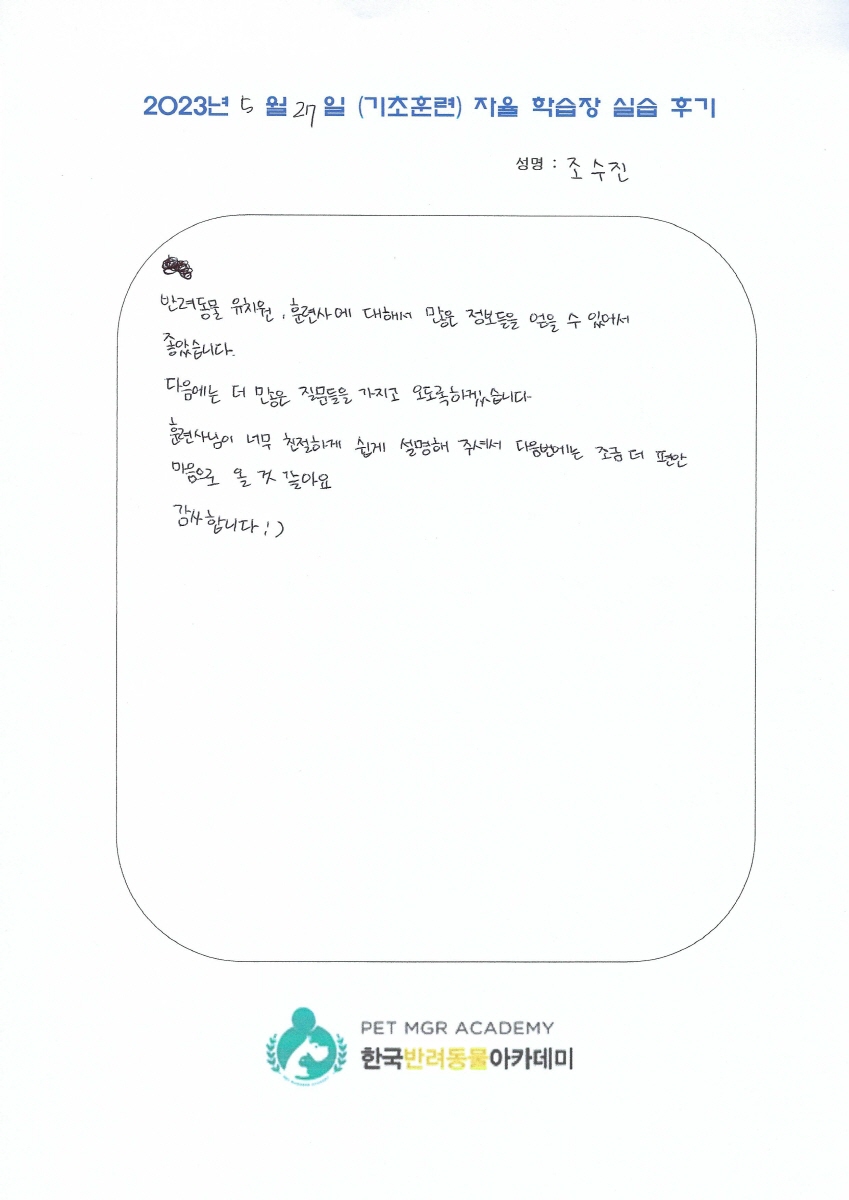 2023년 5월 27일 (기초훈련) 자율 학습장 실습 후기
성명 : 조수진
반려동물 유치원, 훈련사에 대해서 많은 정보들을 얻을 수 있어서
좋았습니다.
다음에는 더 많은 질문들을 가지고 오도록하겠습니다
훈련사님이 너무 친절하게 쉽게 설명해 주셔서 다음번에는 조금 더 편안
마음으로 올 것 같아요
감사합니다 :)
PET MGR ACADEMY
한국반려동물아카데미